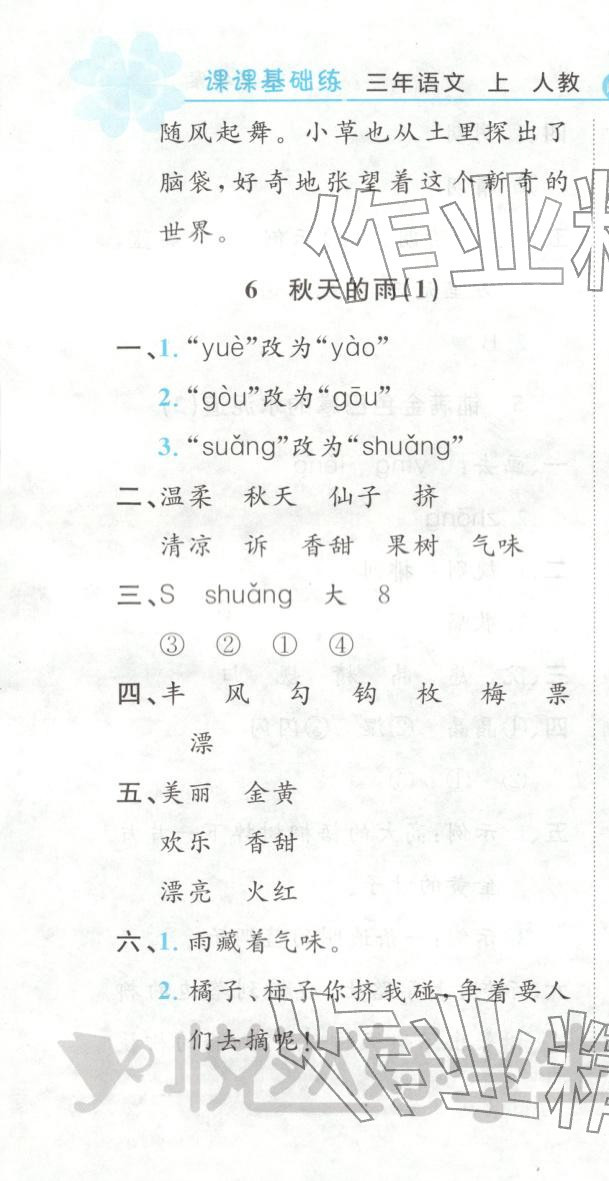 课课基础练 三年语文 上 人教
随风起舞。小草也从土里探出了
脑袋,好奇地张望着这个新奇的
世界。
作业精
6 秋天的雨(1)
一、1. “yuè”改为“yào”
2. “gòu”改为“gōu”
3. “suǎng”改为“shuǎng”
二、温柔 秋天 仙子 挤
清凉 诉 香甜 果树 气味
三、S shuǎng 大 8
③ ② ① ④
四、丰 风 勾 钩 枚 梅 票
漂
五、美丽 金黄
欢乐 香甜
漂亮 火红
六、1. 雨藏着气味。
2. 橘子、柿子你挤我碰,争着要人
们去摘呢!
作业精
悦然好学生